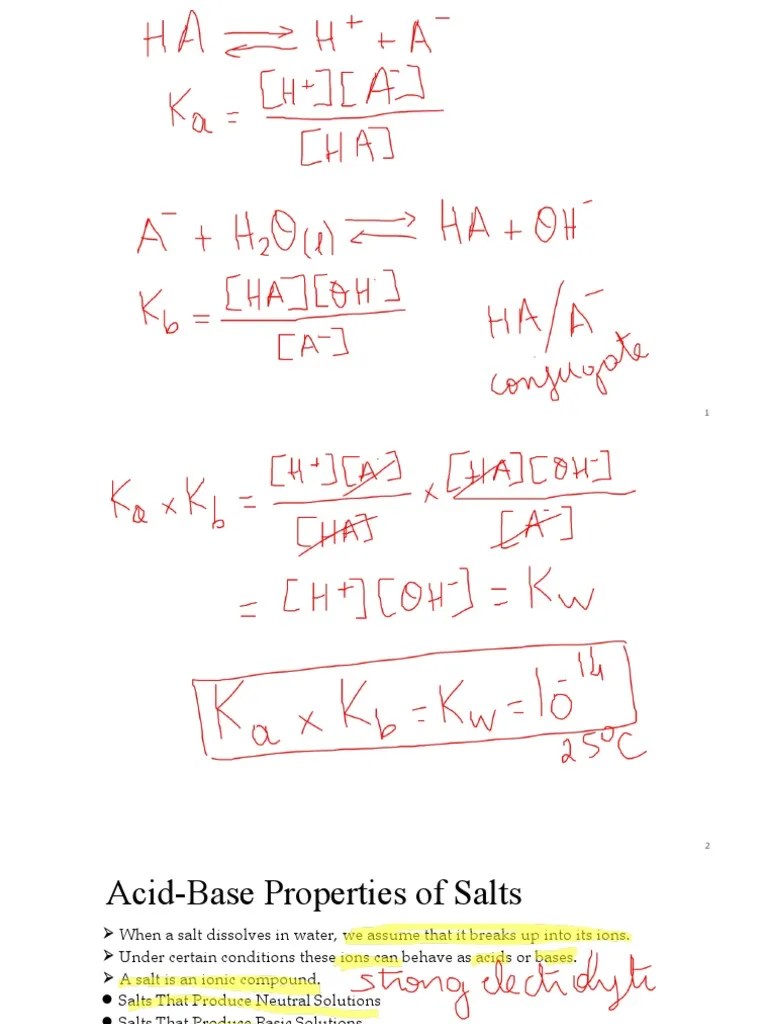 HA ⇌ H⁺ + A⁻
Ka = [H⁺][A⁻] / [HA]
A⁻ + H₂O(l) ⇌ HA + OH⁻
Kb = [HA][OH⁻] / [A⁻]
HA/A⁻
conjugate
1
Ka × Kb = [H⁺][A⁻] / [HA] × [HA][OH⁻] / [A⁻]
= [H⁺][OH⁻] = Kw
Ka × Kb = Kw = 10⁻¹⁴
25°C
2
Acid-Base Properties of Salts
➢ When a salt dissolves in water, we assume that it breaks up into its ions.
➢ Under certain conditions these ions can behave as acids or bases.
➢ A salt is an ionic compound. strong electrolyte
● Salts That Produce Neutral Solutions
● Salts That Produce Basic Solutions